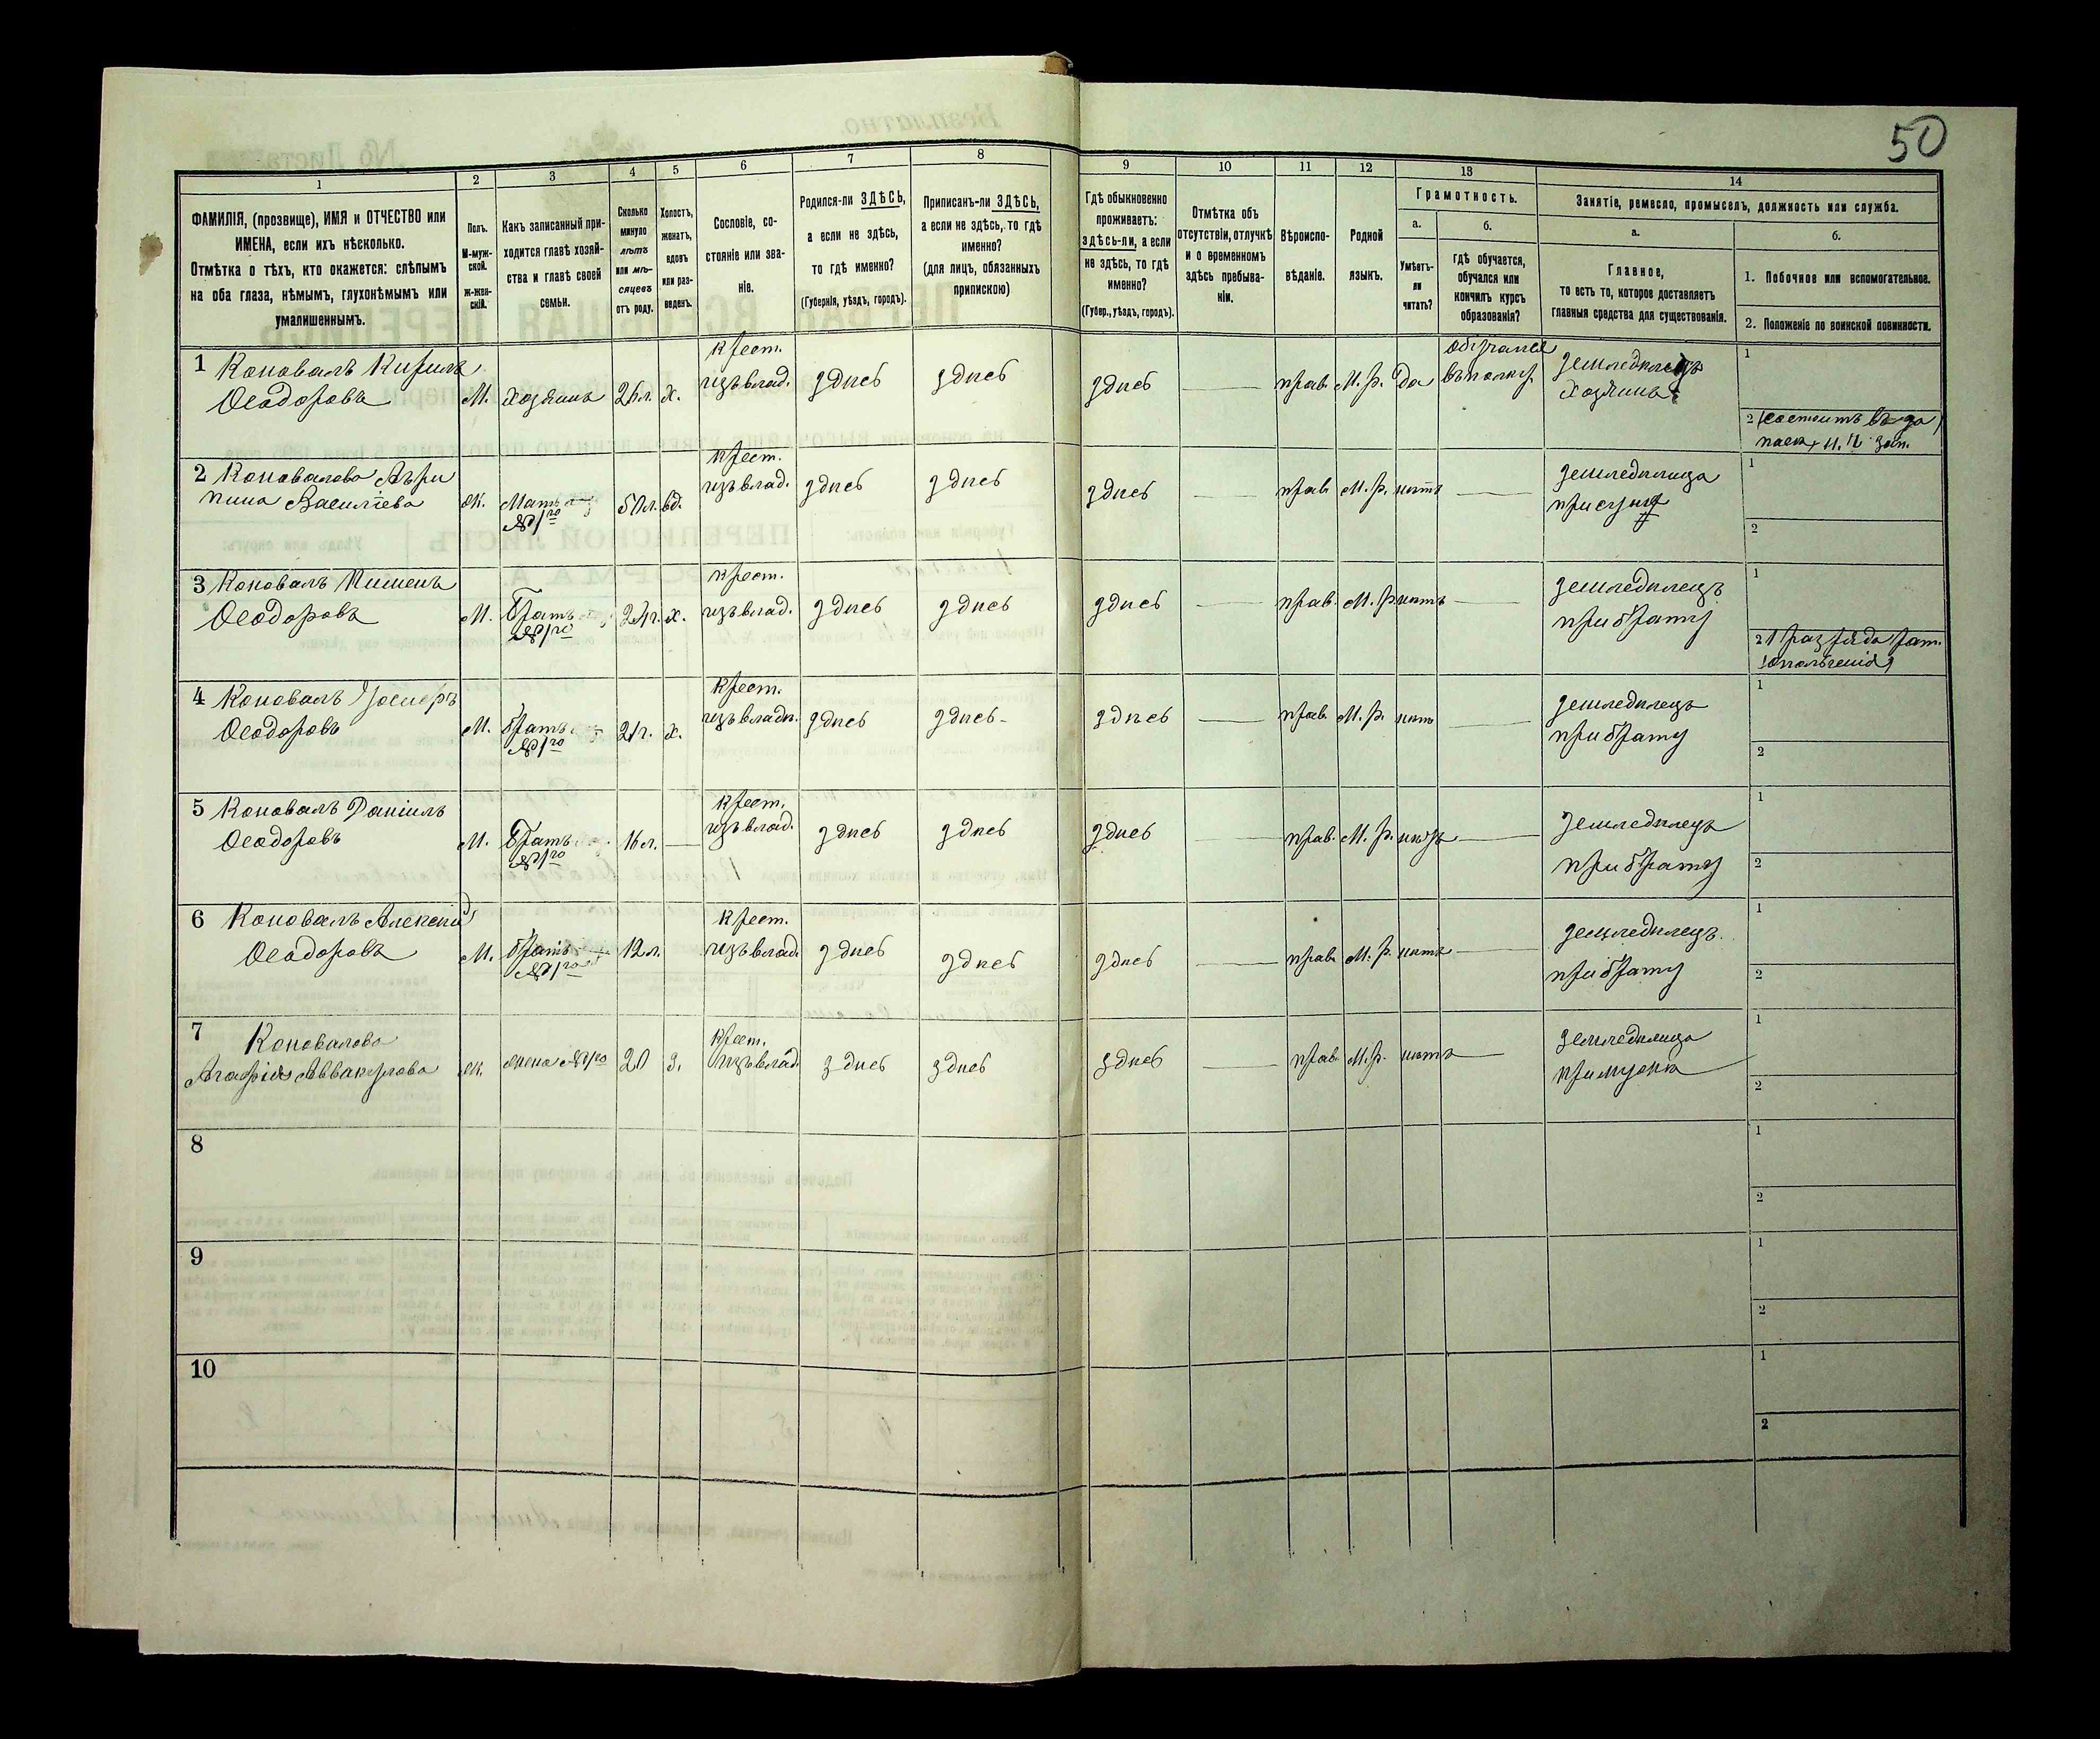 50
1
2
3
4
5
6
7
8
9
10
11
12
13
14
ФАМИЛІЯ, (прозвище), ИМЯ и ОТЧЕСТВО или
ИМЕНА, если ихъ нѣсколько.
Отмѣтка о тѣхъ, кто окажется: слѣпымъ
на оба глаза, нѣмымъ, глухонѣмымъ или
умалишеннымъ.
Полъ.
М-муж-
ской.
Ж-жен-
скій.
Какъ записанный при-
ходится главѣ хозяй-
ства и главѣ своей
семьи.
Сколько
минуло
лѣтъ
или мѣ-
сяцевъ
отъ роду.
Холостъ,
женатъ,
вдовъ
или раз-
веденъ.
Сословіе, со-
стояніе или зва-
ніе.
Родился-ли ЗДѢСЬ,
а если не здѣсь,
то гдѣ именно?
(Губернія, уѣздъ, городъ).
Приписанъ-ли ЗДѢСЬ,
а если не здѣсь, то гдѣ
именно?
(для лицъ, обязанныхъ
припискою)
Гдѣ обыкновенно
проживаетъ:
здѣсь-ли, а если
не здѣсь, то гдѣ
именно?
(Губер., уѣздъ, городъ).
Отмѣтка объ
отсутствіи, отлучкѣ
и о временномъ
здѣсь пребыва-
ніи.
Вѣроиспо-
вѣданіе.
Родной
языкъ.
Грамотность.
а.
Умѣетъ-
ли
читать?
б.
гдѣ обучается,
обучался или
кончилъ курсъ
образованія?
Занятіе, ремесло, промыселъ, должность или служба.
а.
Главное,
то есть то, которое доставляетъ
главныя средства для существованія.
б.
1. Побочное или вспомогательное.
2. Положеніе по воинской повинности.
1 Коновалъ Кирилъ
Ѳеодоровъ
М.
хозяинъ
26 л.
х.
крест.
изъ влад.
здѣсь
здѣсь
здѣсь
прав.
М. р.
Да
обучался
въ полку
земледѣлецъ
хозяинъ
1
2 (состоитъ въ за
пасѣ)
2 Коновалова Агри
пина Василіева
ж.
Мать
№ 1го
50 л.
вд.
крест.
изъ влад.
здѣсь
здѣсь
здѣсь
прав.
М. р.
нѣтъ
земледѣлица
при сынѣ
1
2
3 Коновалъ Пименъ
Ѳеодоровъ
М.
Братъ
№ 1го
24 г.
х.
крест.
изъ влад.
здѣсь
здѣсь
здѣсь
прав.
М. р.
нѣтъ
земледѣлецъ
при брату
1
2 1 разряда рат.
(ополченія)
4 Коновалъ
Ѳеодоровъ
М.
братъ
№ 1го
21 г.
х.
крест.
изъ влад.
здѣсь
здѣсь
здѣсь
прав.
М. р.
нѣтъ
земледѣлецъ
при брату
1
2
5 Коновалъ Даніилъ
Ѳеодоровъ
М.
Братъ
№ 1го
16 л.
крест.
изъ влад.
здѣсь
здѣсь
здѣсь
прав.
М. р.
нѣтъ
земледѣлецъ
при брату
1
2
6 Коновалъ Алексѣй
Ѳеодоровъ
М.
братъ
№ 1го
12 л.
крест.
изъ влад.
здѣсь
здѣсь
здѣсь
прав.
М. р.
нѣтъ
земледѣлецъ
при брату
1
2
7 Коновалова
Агафія Аввакумова
ж.
жена № 1го
20
з.
крест.
изъ влад.
здѣсь
здѣсь
здѣсь
прав.
М. р.
нѣтъ
земледѣлица
при мужѣ
1
2
8
1
2
9
1
2
10
1
2